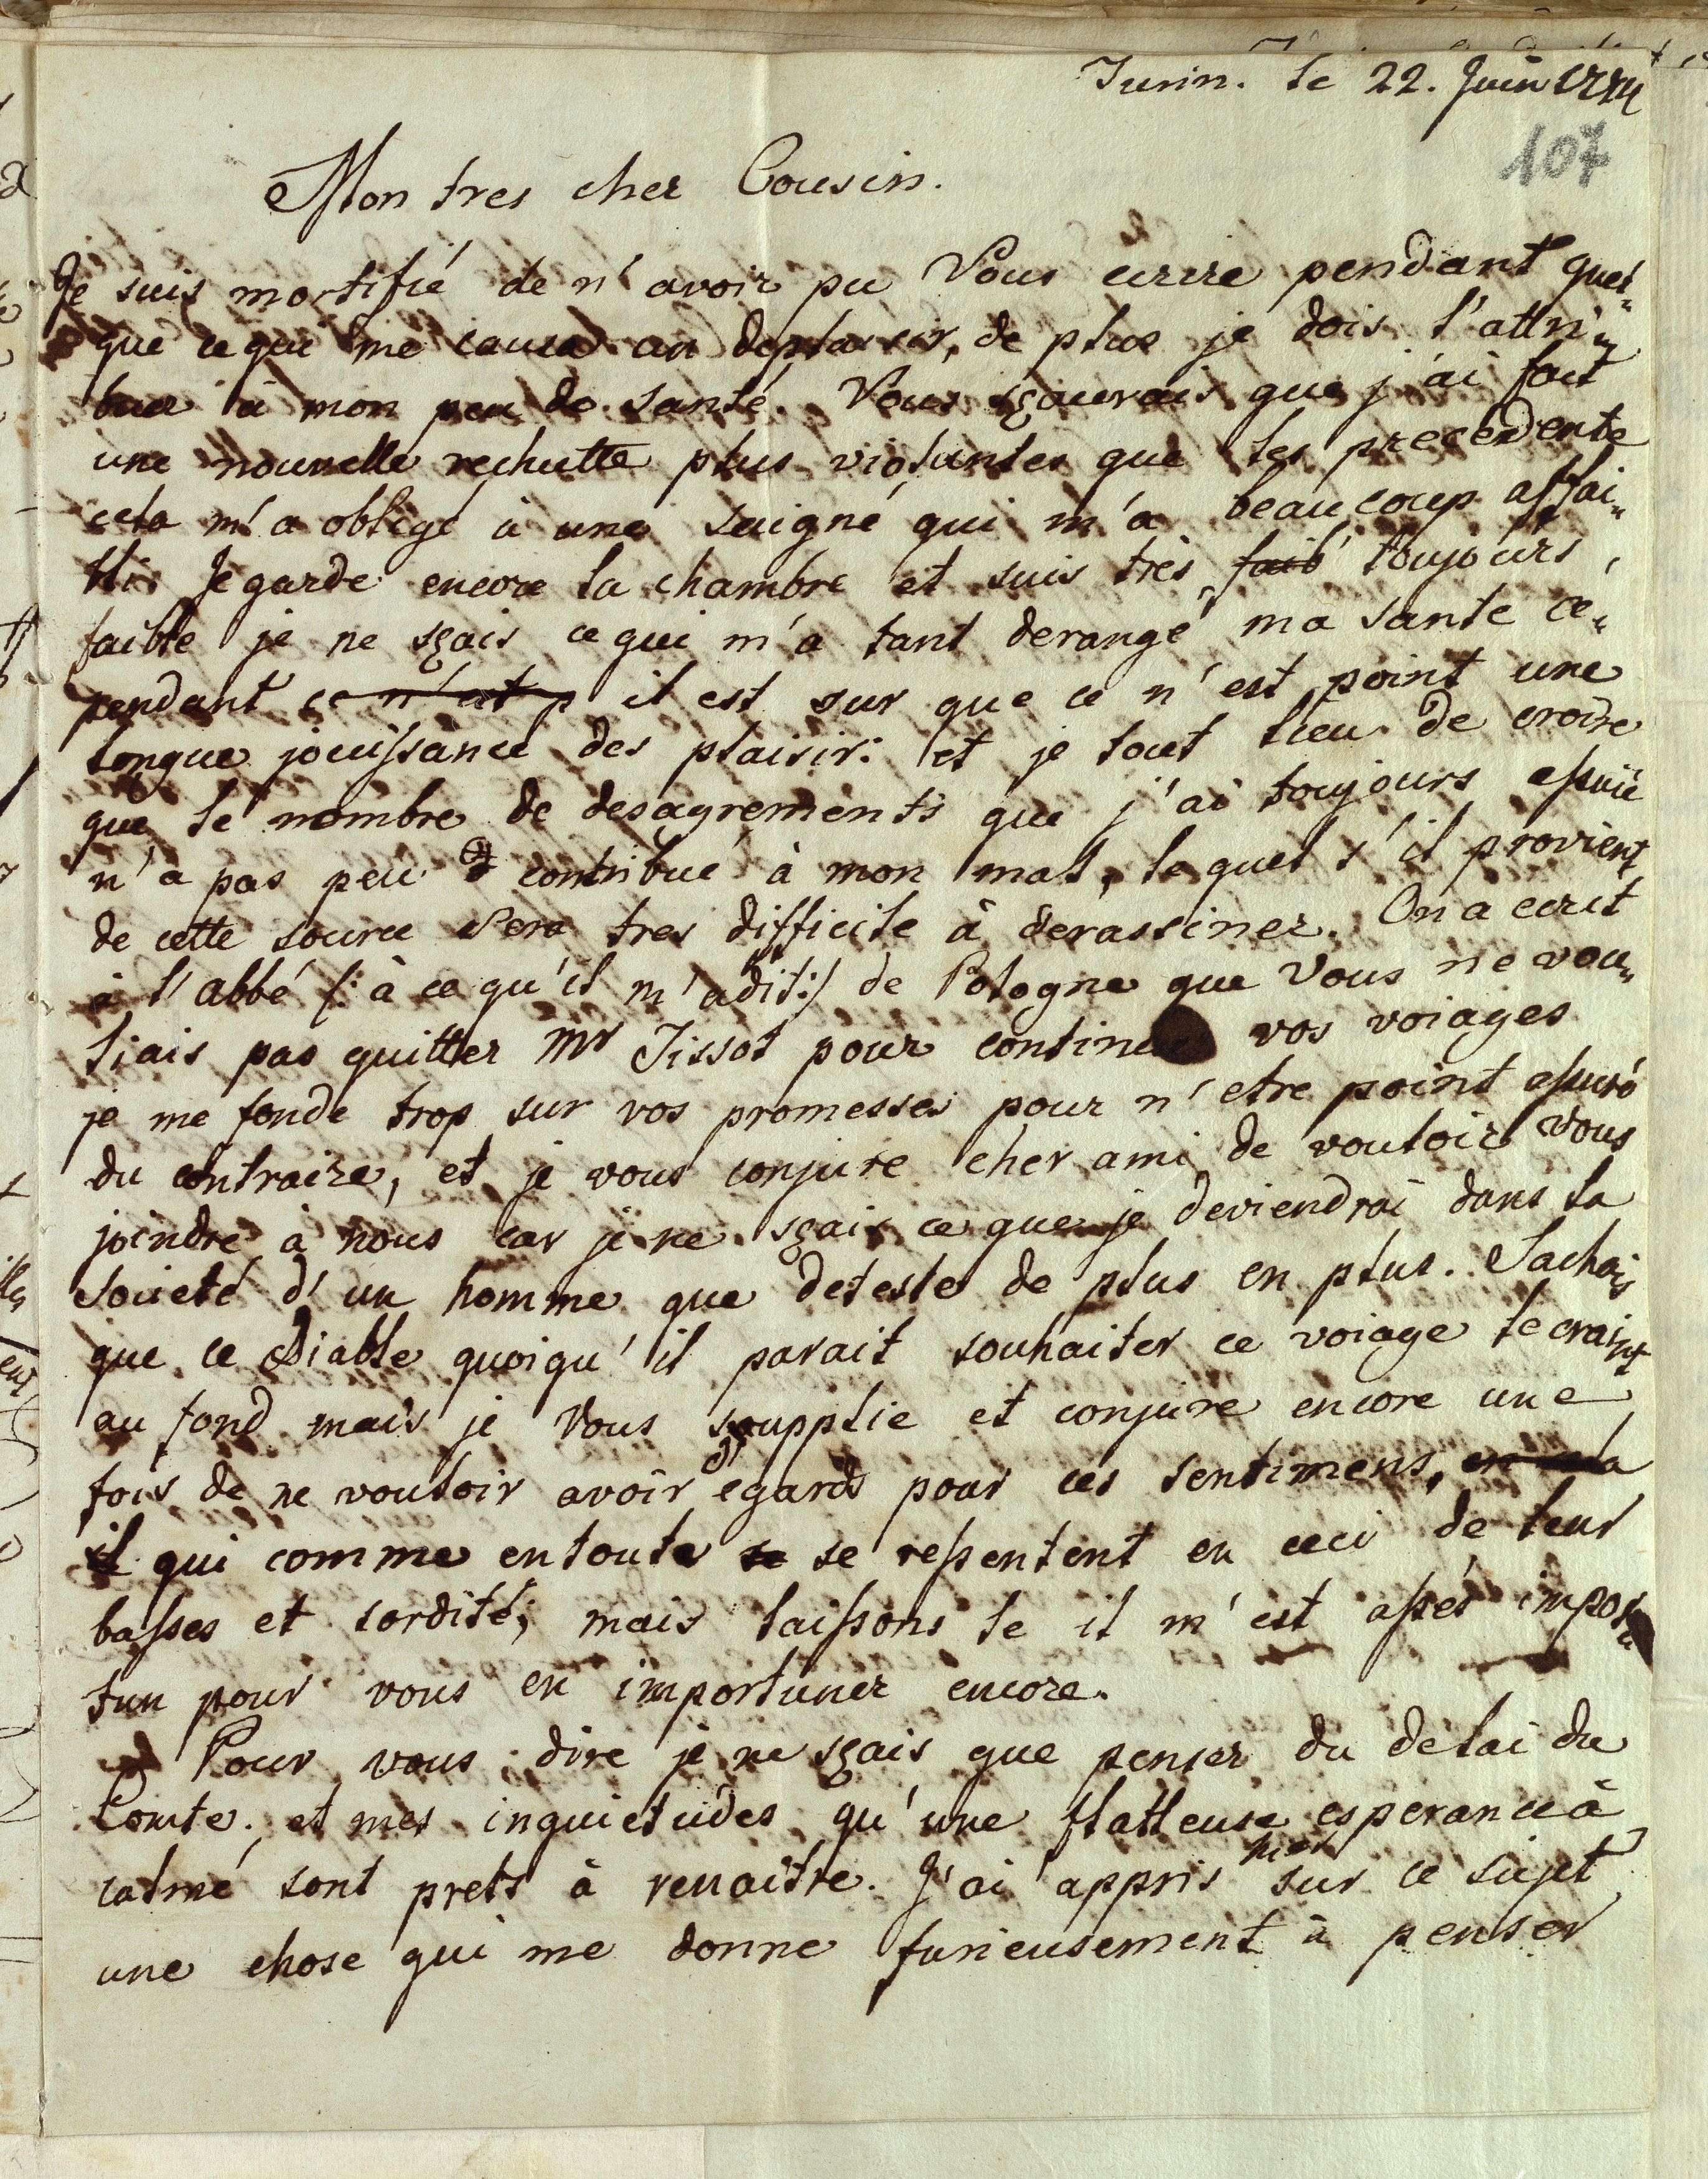 Turin. le 22. Juin
107
Mon tres cher Cousin.
Je suis mortifié de n'avoir pu Vous ecrire pendant quel„
que ce qui me causa un deplaisir, de plus je dois l'attri„
buer à mon peu de santé. Vous sçaurais que j'ai fait
une nouvelle rechutte plus violantes que les precedente
cela m'a obligé à une saigné qui m'a beaucoup affai„
bli. Je garde encore la chambre et suis très faib toujours,
faible je ne sçais ce qui m'a tant derangé ma santé ce„
pendant ce n'est p il est sur que ce n'est point une
longue jouissance des plaisir: et je tout lieu de croire
que le nombre de desagrements que j'ai toujours essuié
n'a pas peu contribué à mon mal, lequel s'il provient
de cette source sera tres difficile à derassiner. On a ecrit
à l'abbé /: à ce qu'il m'a dit:/ de Pologne que Vous ne vou„
liais pas quitter Mr Tissot pour continuer vos voiages
je me fonde trop sur vos promesses pour n'etre point assuré
du contraire, et je vous conjure cher ami de vouloir vous
joindre à nous car je ne sçais ce que je deviendrai dans la
societé d'un homme que deteste de plus en plus. Sachais
que ce Diable quoiqu'il parait souhaiter ce voiage le craint
au fond mais je Vous soupplie et conjure encore une
fois de ne vouloir avoir d'egards pour ces sentimens, en cela
il qui comme en toute se se ressentent en ceci de leur
basses et sordité; mais laissons le il m'est assés impor„
tun pour vous en importuner encore.
Pour vous dire je ne sçais que penser du delai du
Comte. et mes inquietudes qu'une flatteuse esperance à
calmé sont prets à renaître. J'ai appris hier sur ce sujet
une chose qui me donne furieusement à penser